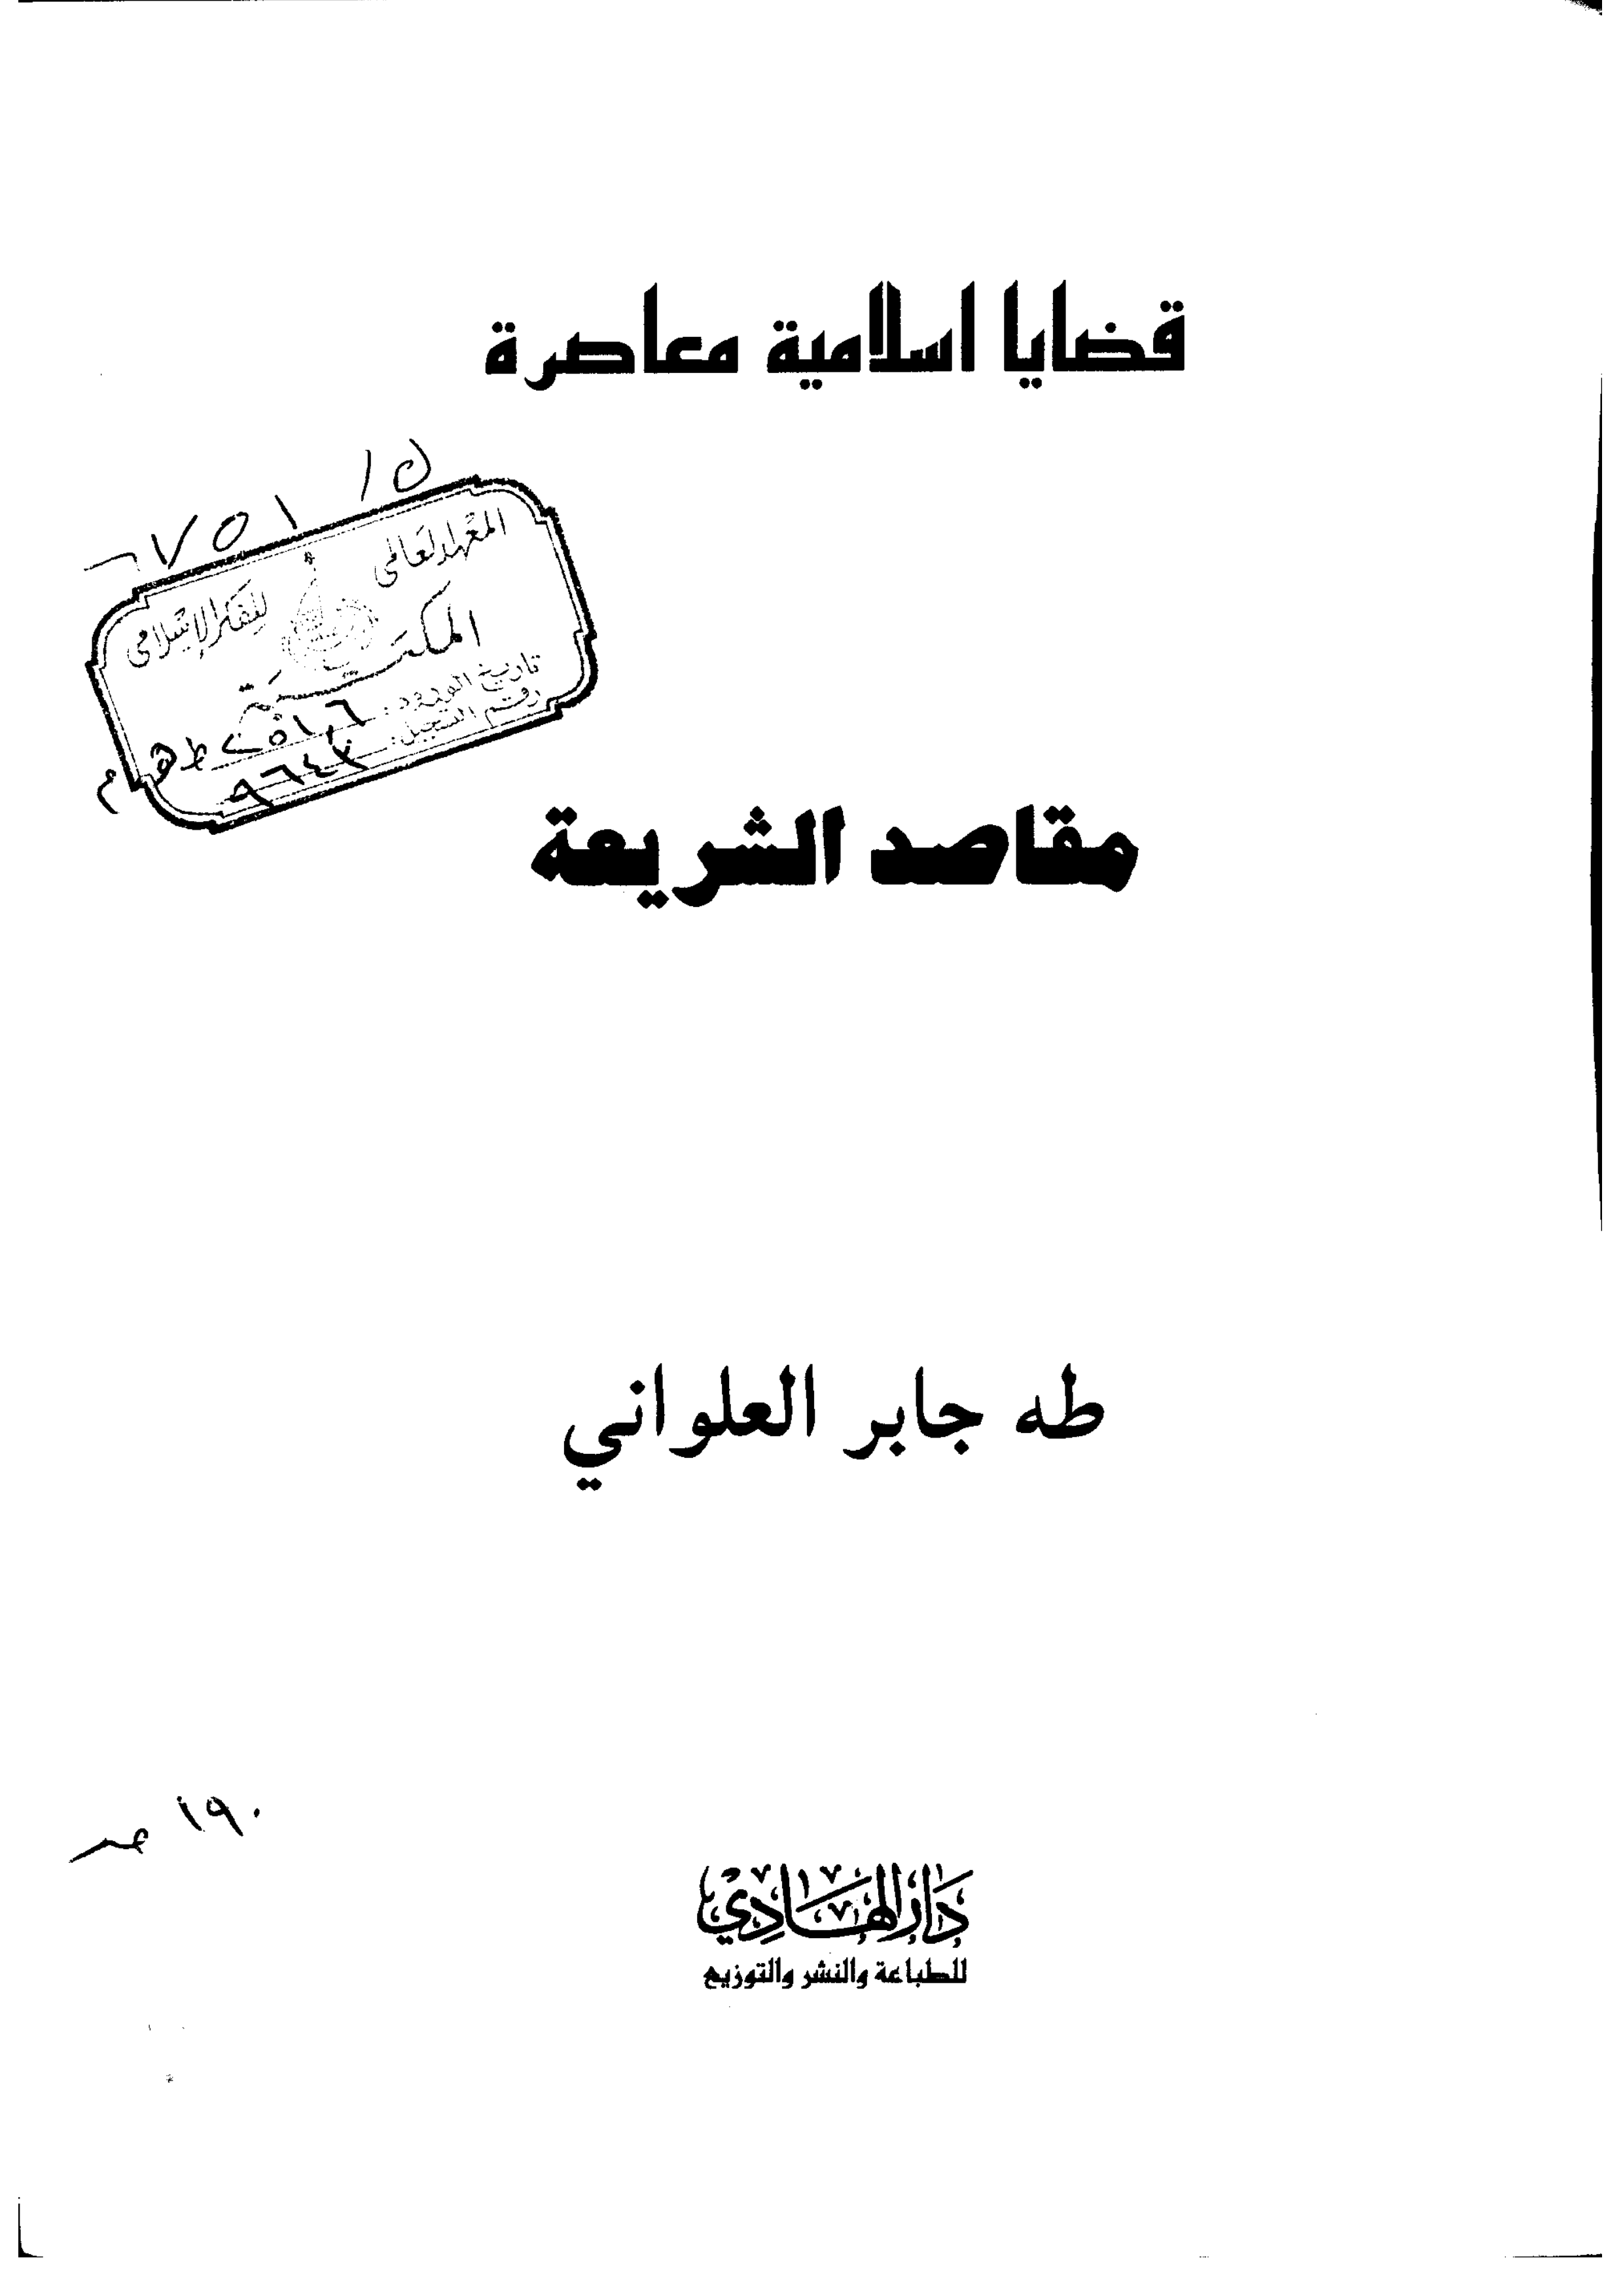 قضايا اسلامية معاصرة
المعهد العالمي
للفكر الإسلامي
المكتبة
تاريخ الورود:
رقم التسجيل:
مقاصد الشريعة
طه جابر العلواني
١٩٠
دار الهادي
للطباعة والنشر والتوزيع